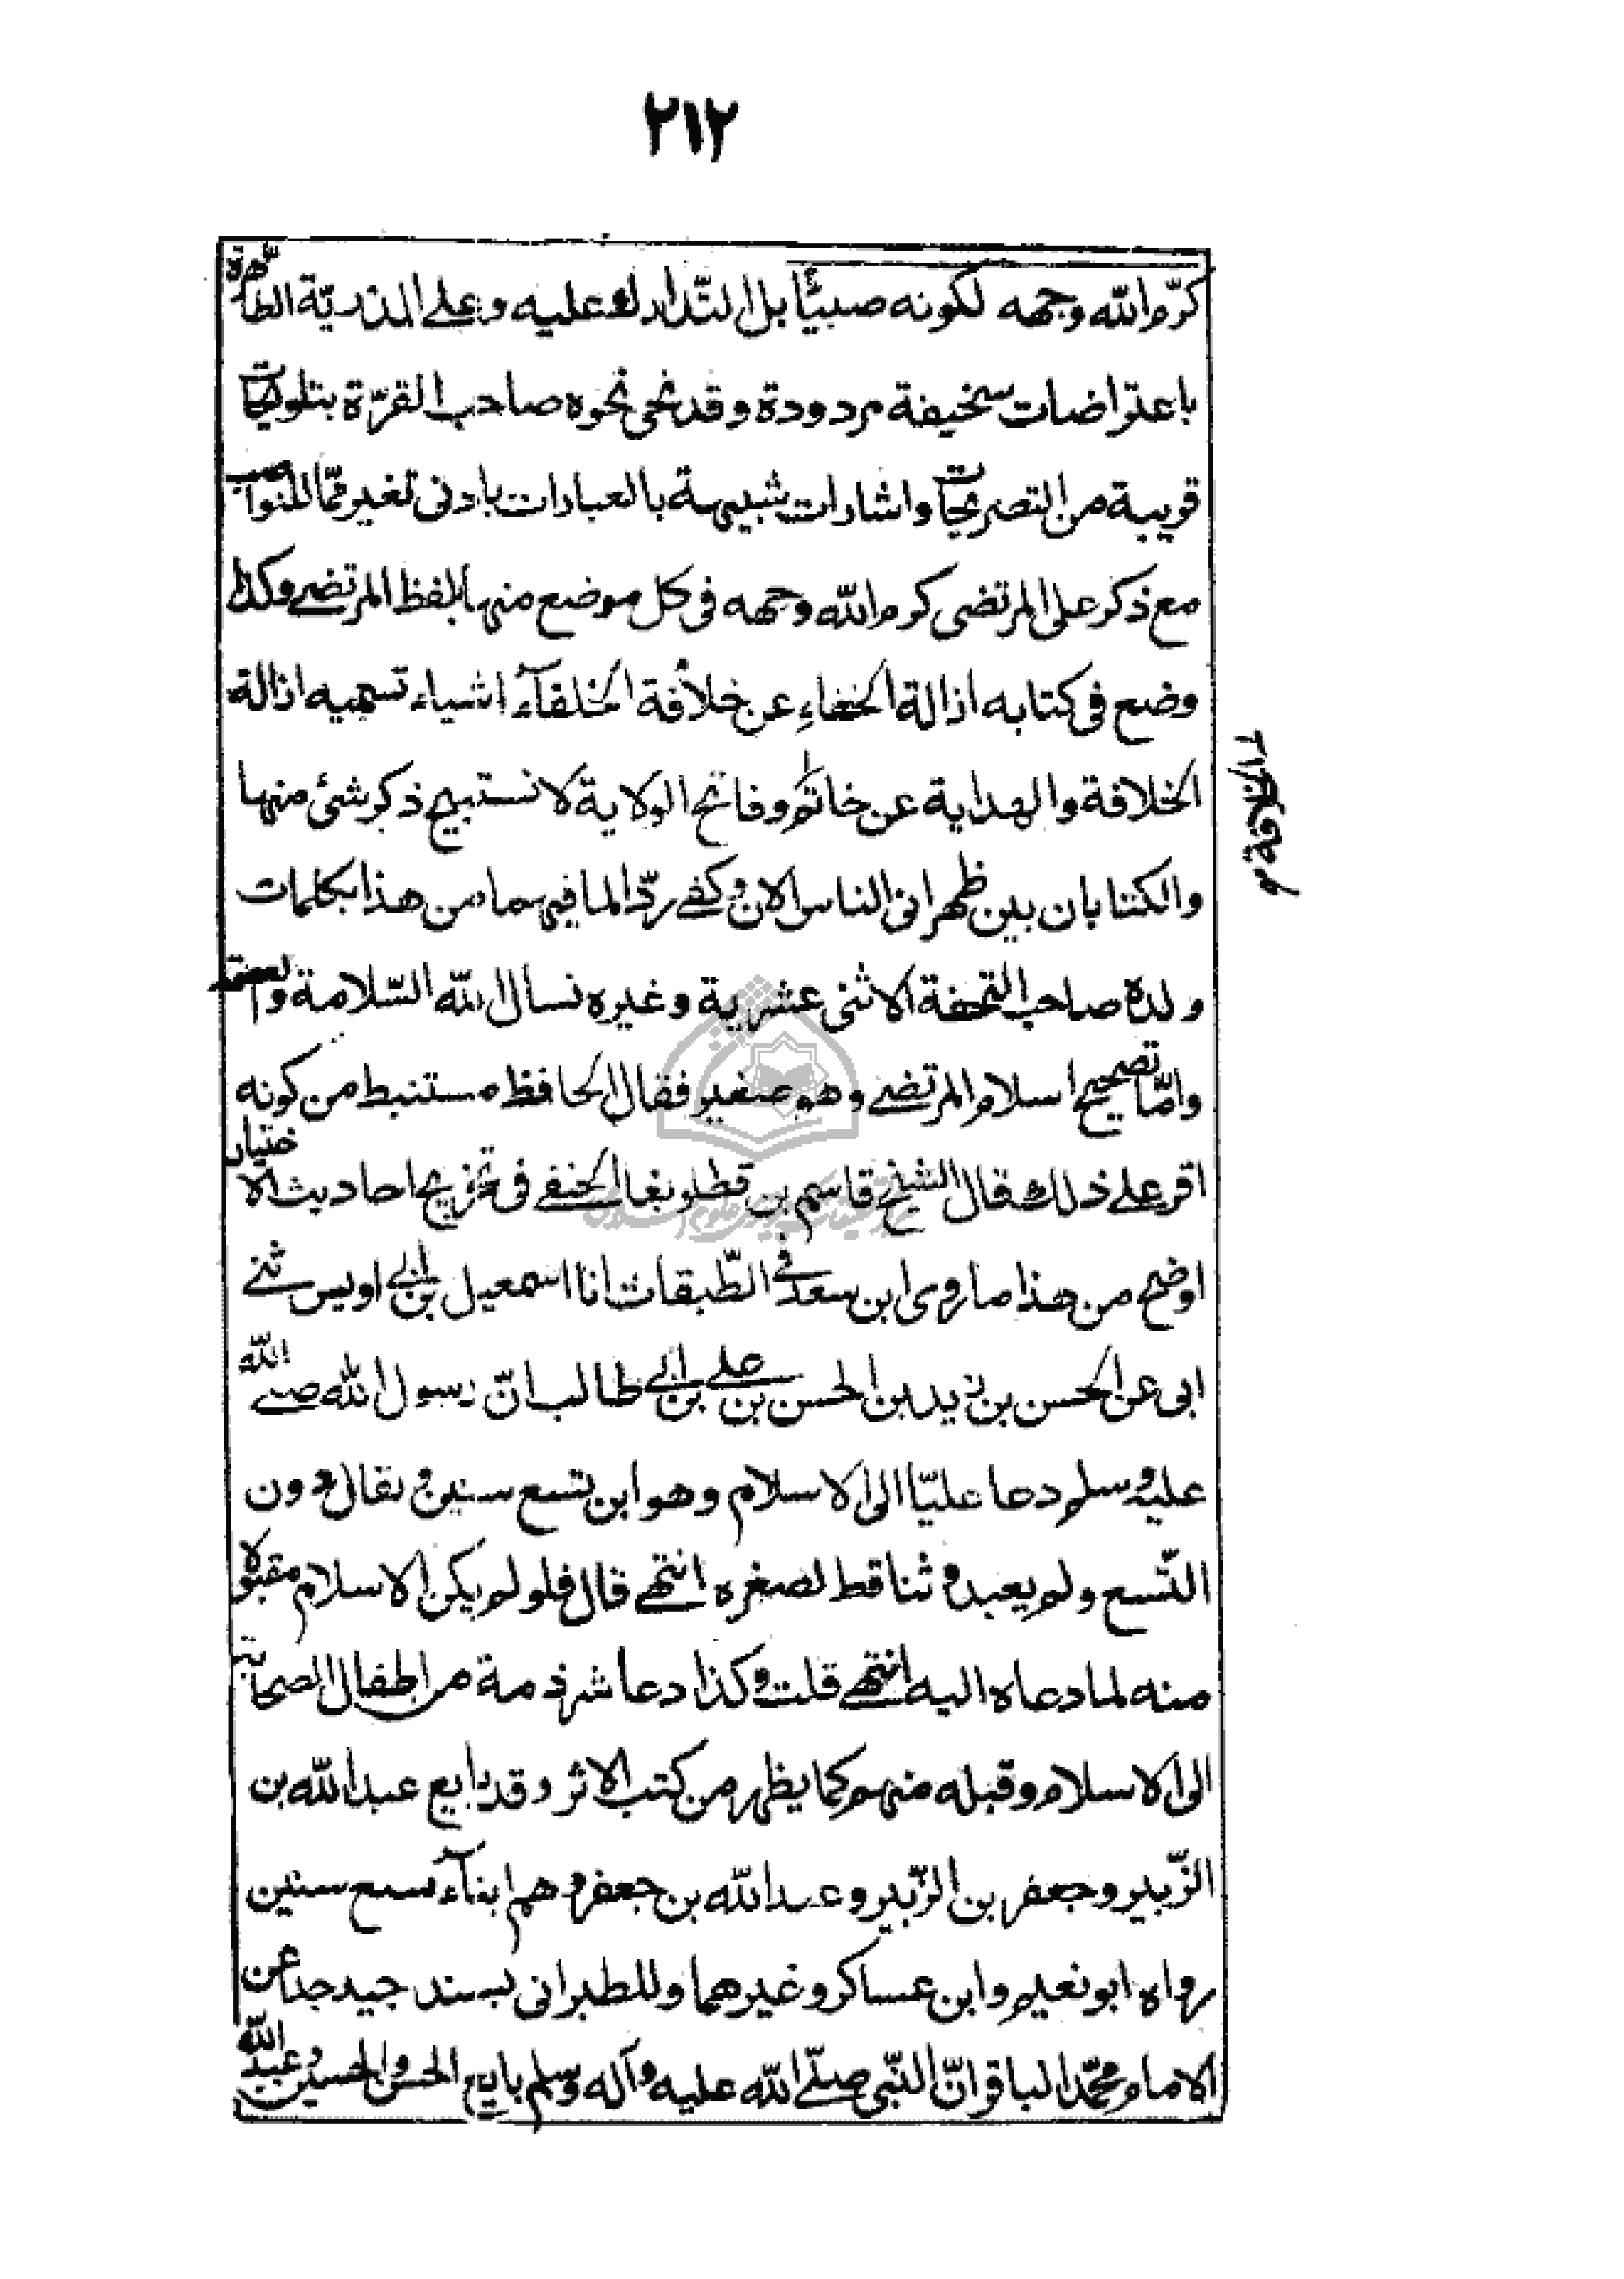 ٢١٢
كرّم الله وجهه لكونه صبيّأ بل التّدارك عليه وعلى الذريّة الطاهرة
باعتراضات سخيفة مردودة وقد نحى نحوه صاحب القرّة بتلويحات
قريبة من التصريحات واشارات شبيهة بالعبارات بادنى تغير ممّا للنواصب
مع ذكر على المرتضى كرم الله وجهه فى كل موضع منها بلفظ المرتضى وكذا
وضع فى كتابه ازالة الخفاء عن خلافة الخلفآء اشياء تسميه ازالة
الخلافة والهداية عن خاتم وفاتح الولاية لا نستبيح ذكر شئ منها
والكتابان بين ظهرانى الناس الان وكفى ردّا لما فيهما من هذا بكلمات
ولده صاحب التحفة الاثنى عشرية وغيره نسال الله السّلامة والعصمة
وامّا تصحيح اسلام المرتضى وهو صغير فقال الحافظ مستنبط من كونه
اقر على ذلك قال الشيخ قاسم بن قطلوبغا الحنفى فى تخريج احاديث الاختيار
اوضح من هذا ما روى ابن سعد فى الطّبقات انا اسمعيل بن ابى اويس ثنى
ابى عن الحسن بن زيد بن الحسن بن على بن ابى طالب انّ رسول الله صلى الله
عليه وسلم دعا عليّا الى الاسلام وهو ابن تسع سنين ويقال دون
التّسع ولم يعبد وثنا قط لصغره انتهى قال فلو لم يكن الاسلام مقبولا
منه لما دعاه اليه انتهى قلت وكذا دعا شرذمة من اطفال الصحابة
الى الاسلام وقبله منهم كما يظهر من كتب الاثر وقد بايع عبد الله بن
الزّبير وجعفر بن الزّبير وعبد الله بن جعفر وهم ابنآء سبع سنين
رواه ابو نعيم وابن عساكر وغيرهما وللطبرانى بسند جيد جدا عن
الامام محمّد الباقر انّ النّبى صلّى الله عليه وآله وسلم بايع الحسن والحسين وعبد الله